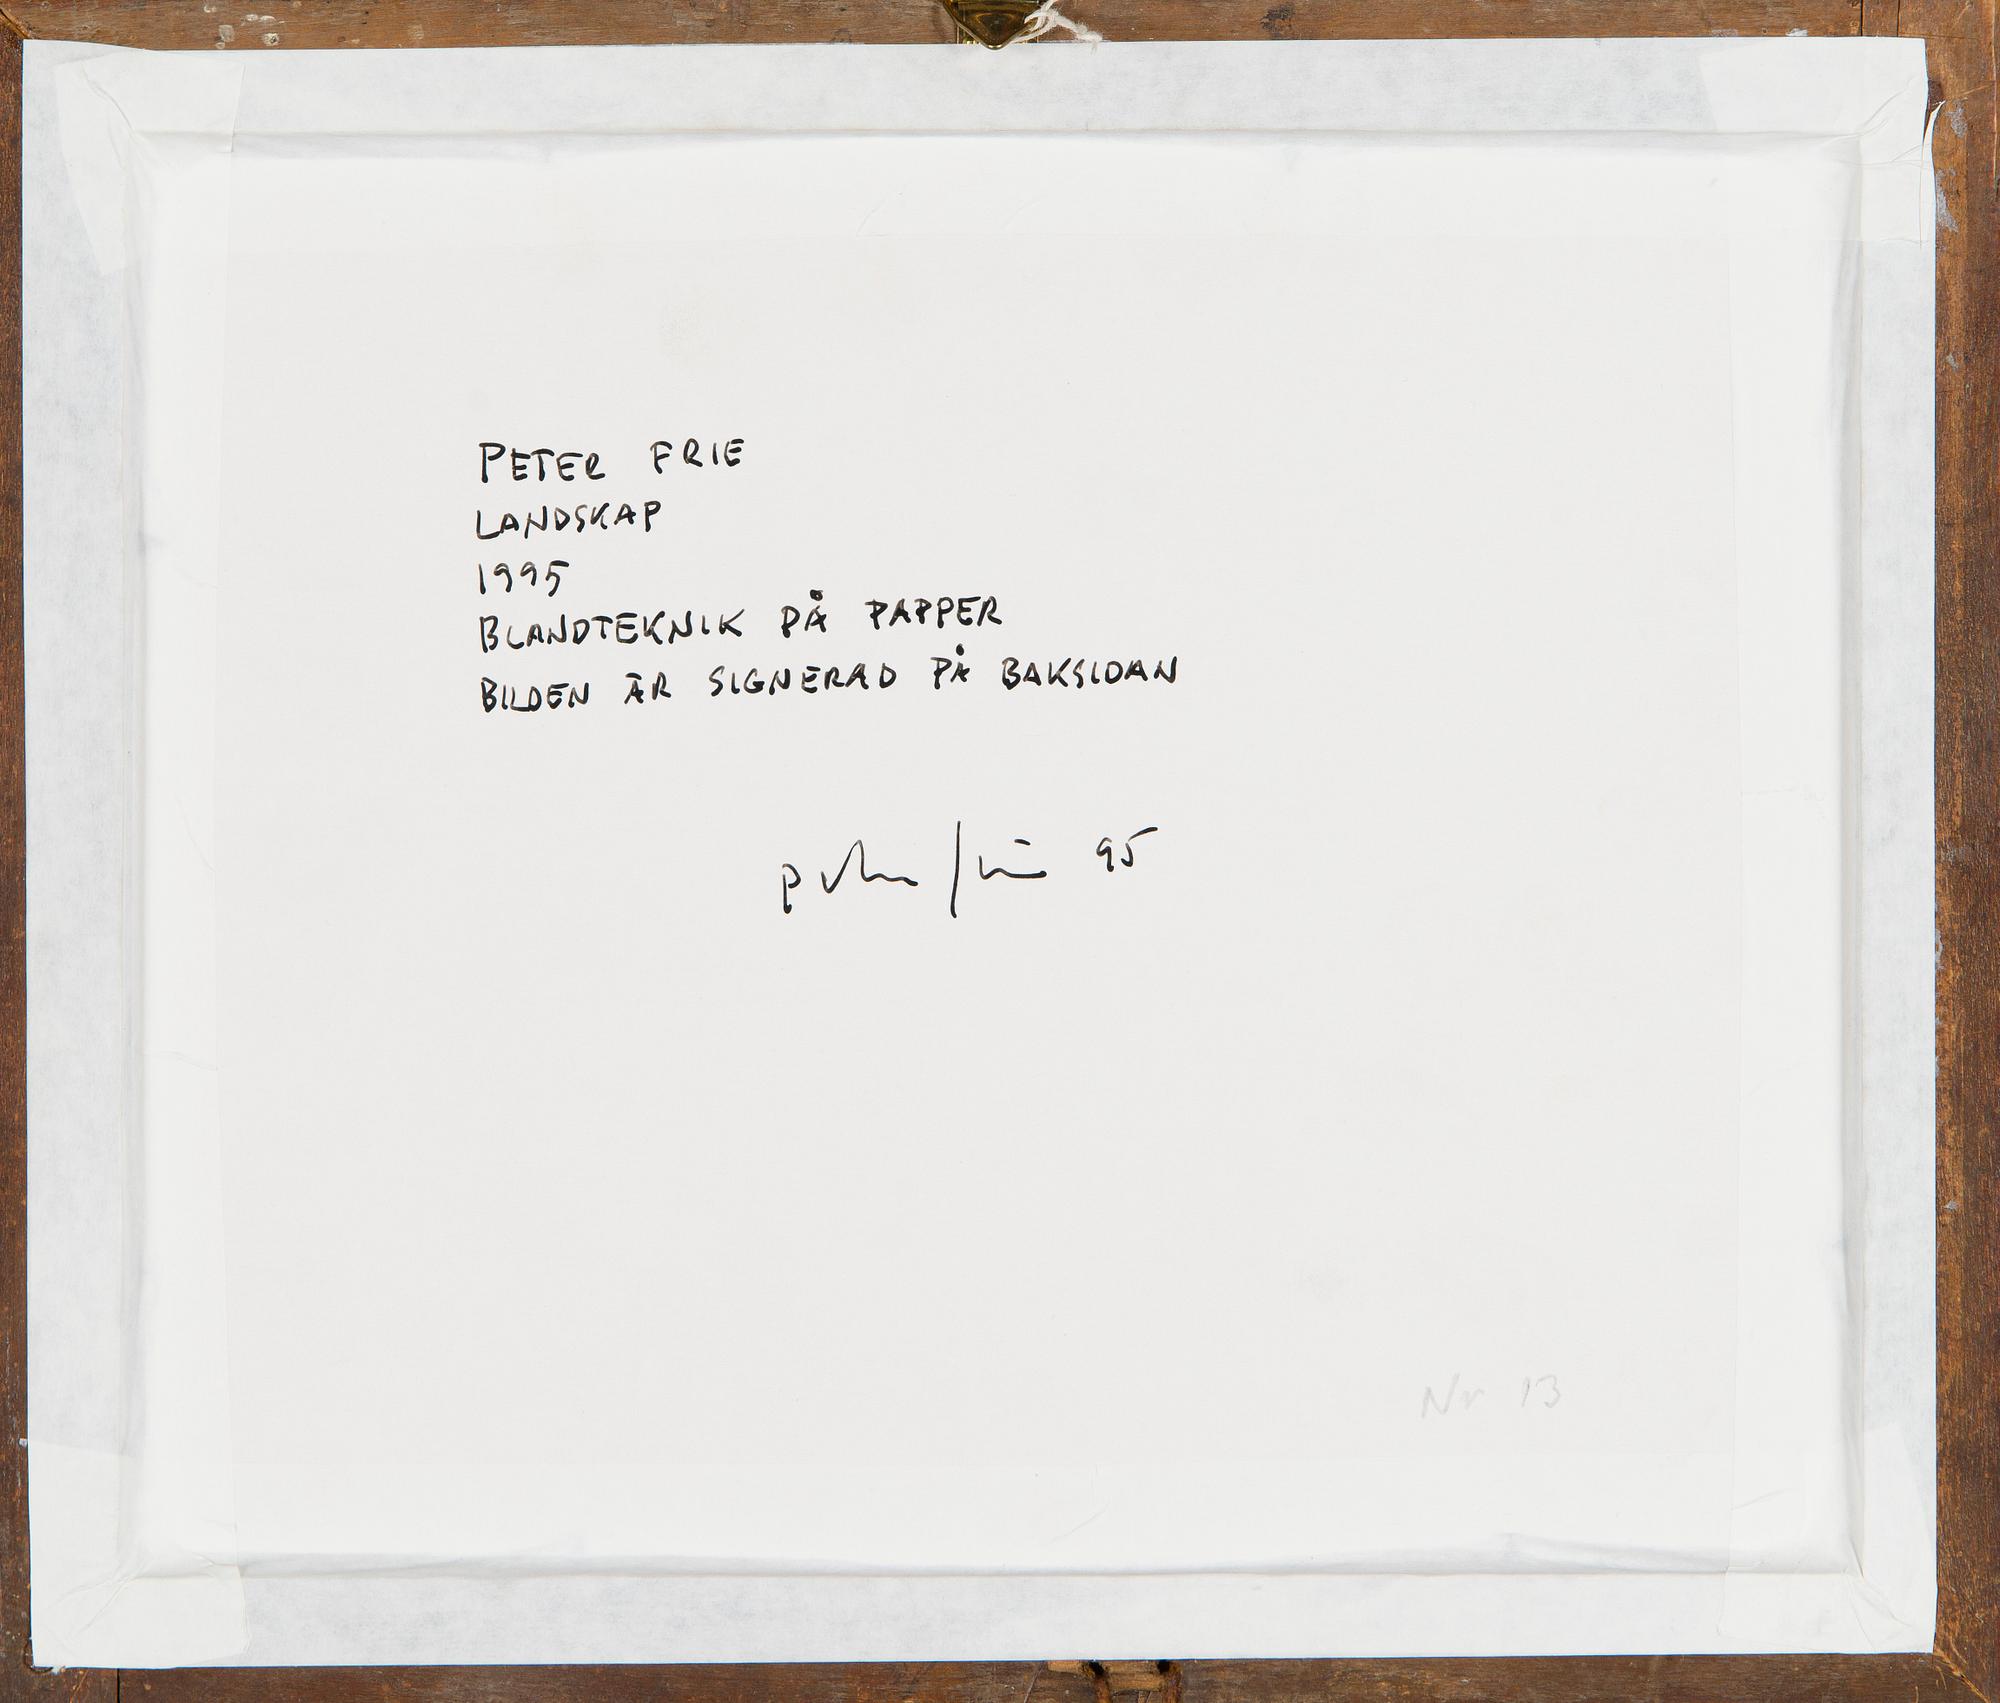 PETER FRIE
LANDSKAP
1995
BLANDTEKNIK PÅ PAPPER
BILDEN ÄR SIGNERAD PÅ BAKSIDAN
peter frie 95
Nr 13